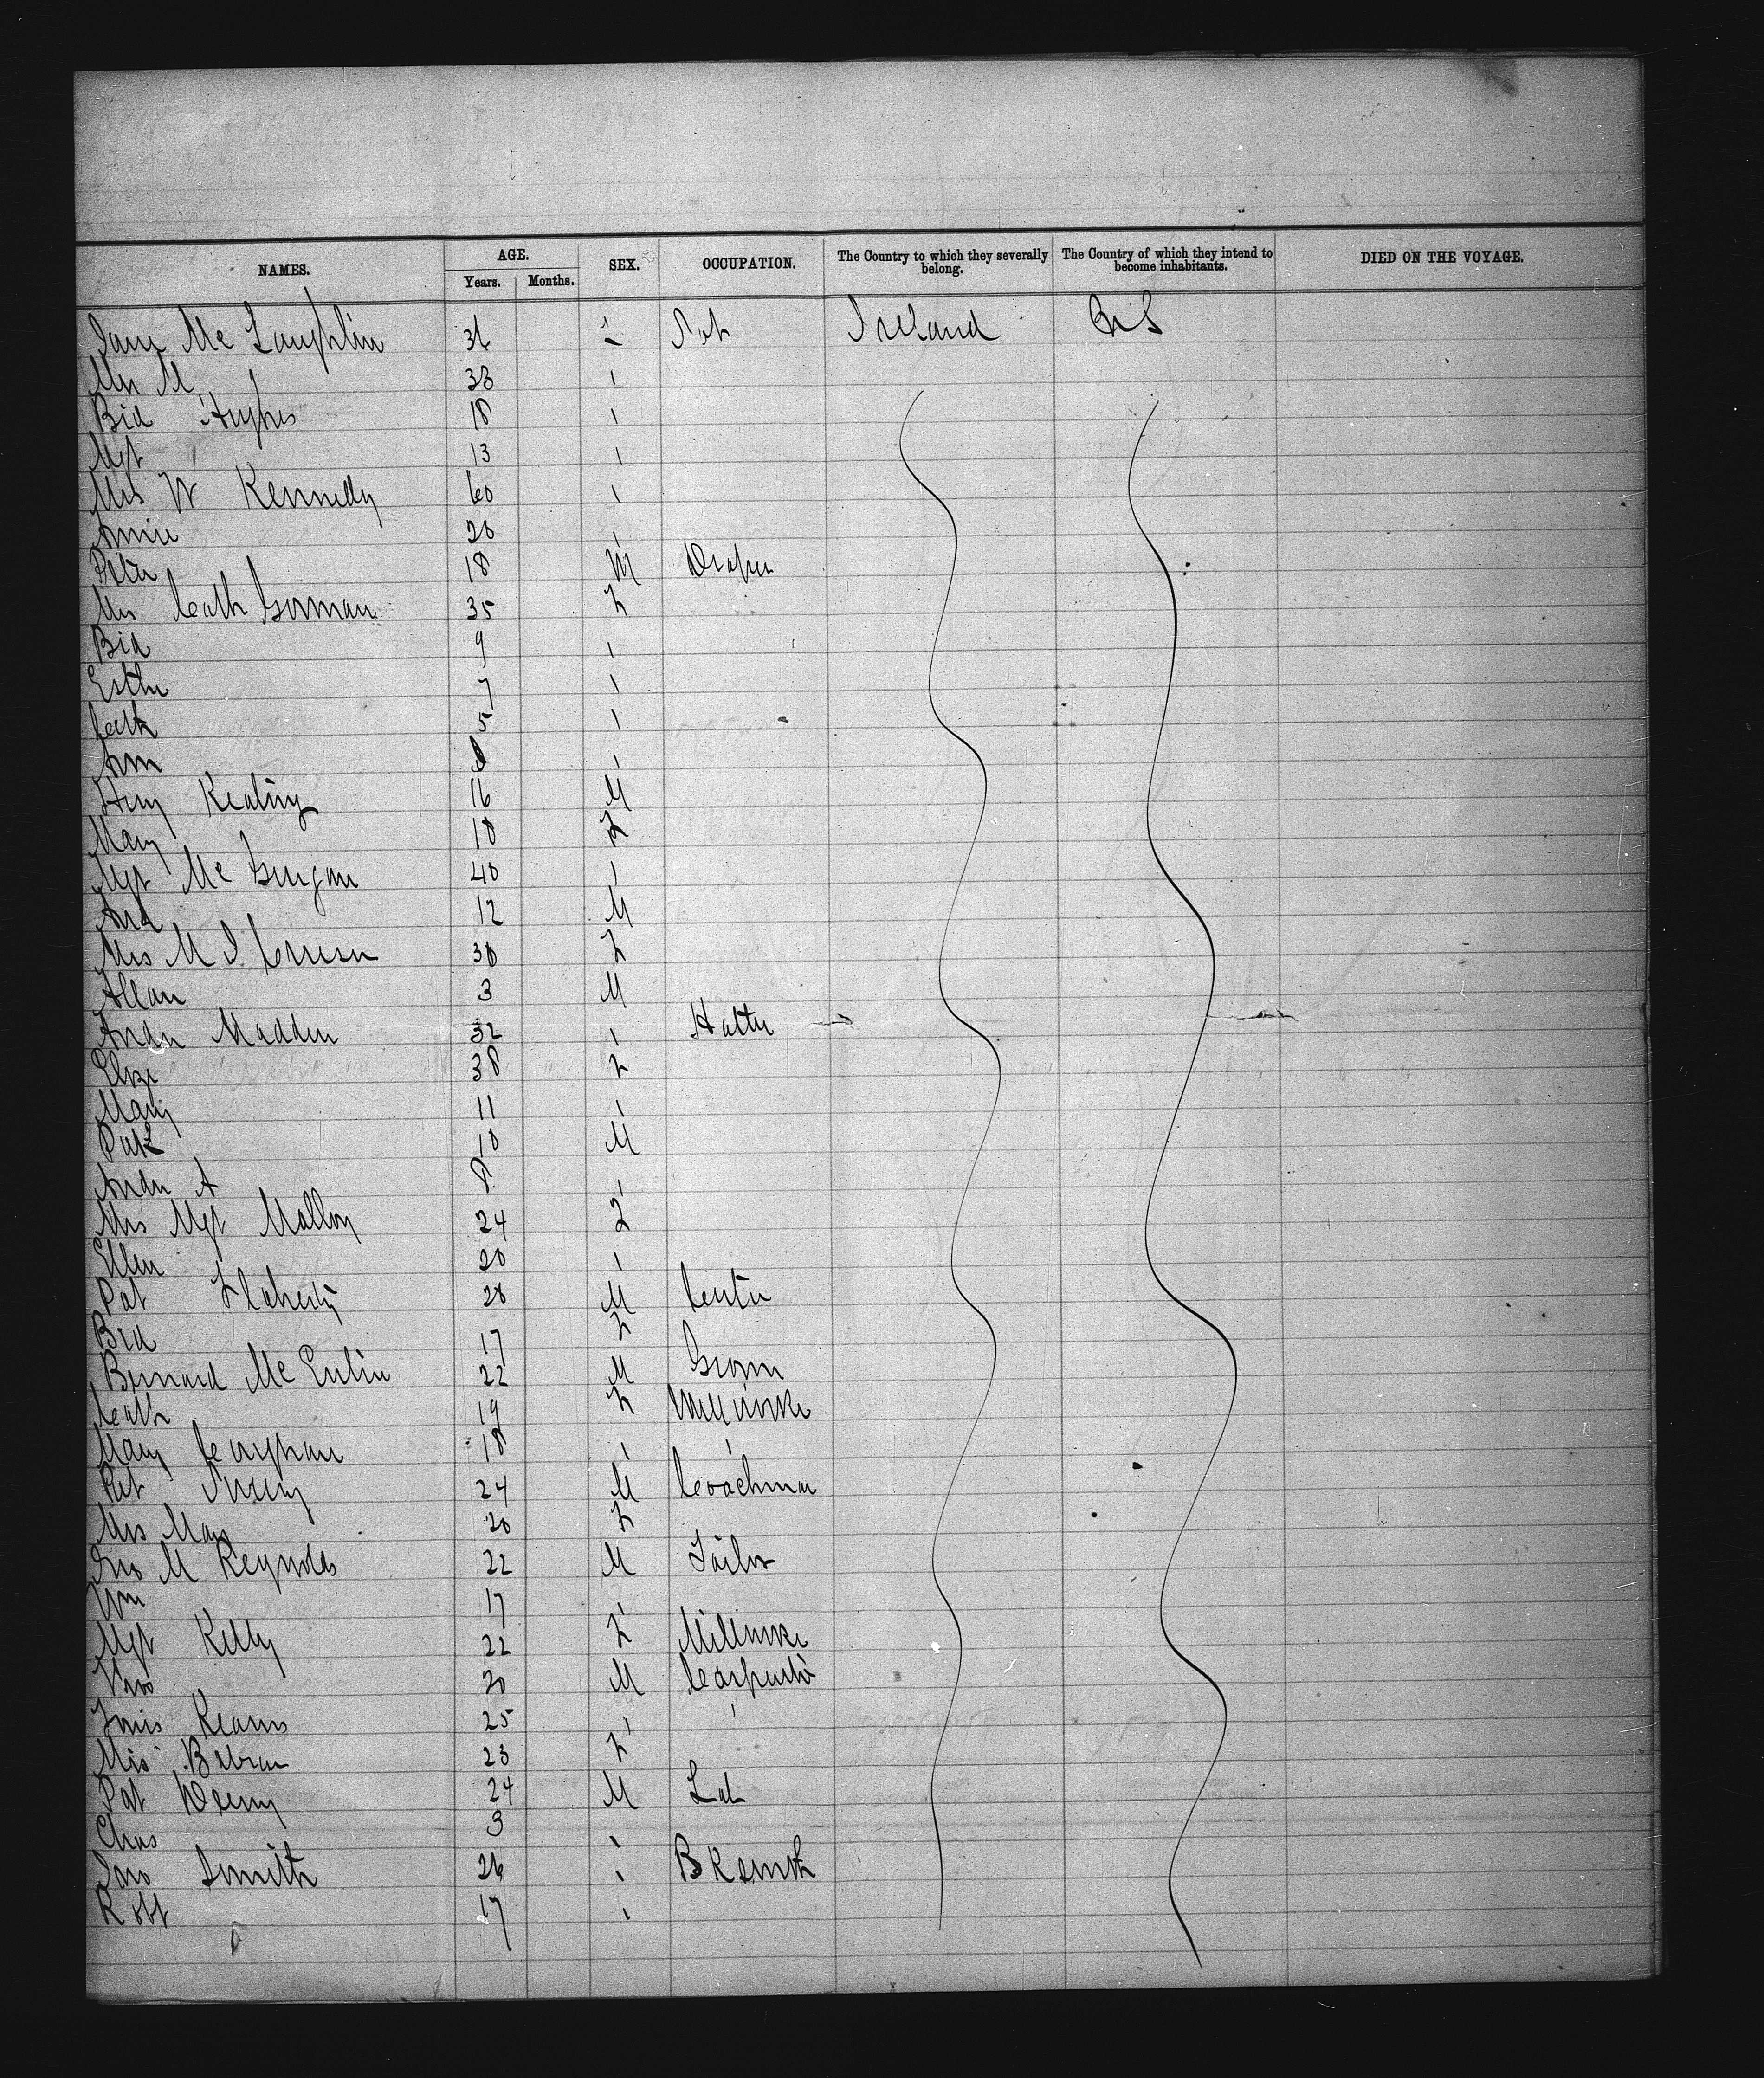 NAMES. AGE. SEX. OCCUPATION. The Country to which they severally belong. The Country of which they intend to become inhabitants. DIED ON THE VOYAGE.
Years. Months.
Mc Laughlin 36 Ireland
Mrs M 38
Bid Hughes 18
Mgt 13
Mrs W Kennedy 60
Annie 20
Peter 18 M Draper
Mrs Cath Gorman 35 F
Bid 9
Esther 7
Cath 5
Ann
Heny Keating 16 M
Mary 10 F
Mgt Mc Gurgan 40
And 12 M
Mrs M J 30 F
Allan 3 M
Andw Madden 32 Hatter
Eliza 38 F
Mary 11
Patk 10 M
Andw A 8
Mrs Mgt Malloy 24 F
Ellen 20
Pat Flaherty 28 M
Bid 17 F
Bernard Mc Enlin 22 M Groom
Cath 19 F Millworke
Mary Caughran 18
Pat 24 M Coachman
Mrs Mary 20 F
Jno M Reynolds 22 M Tailor
Wm 17
Mgt Kelly 22 F Millworke
Thos 20 M Carpenter
Kearns 25
23 F
Pat Deeny 24 M Lab
Chas 3
Jas Smith 26 Bksmith
Robt 17